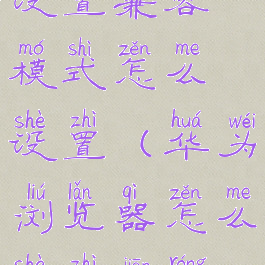 设置兼容
mó shì zěn me
模式怎么
shè zhì huá wéi
设置（华为
liú lǎn qì zěn me
浏览器怎么
shè zhì jiān róng